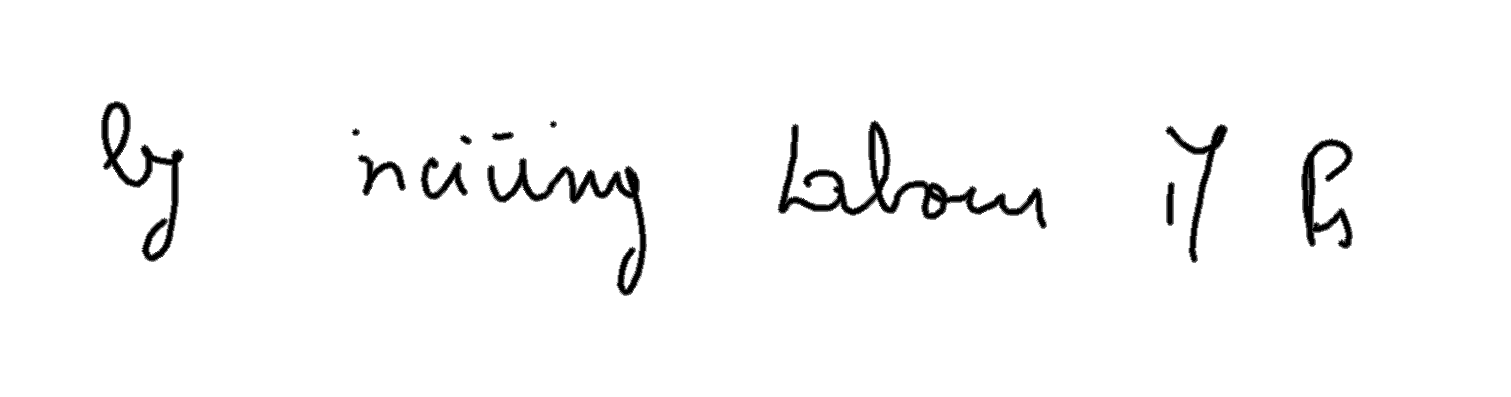 by inciting Labour M Ps